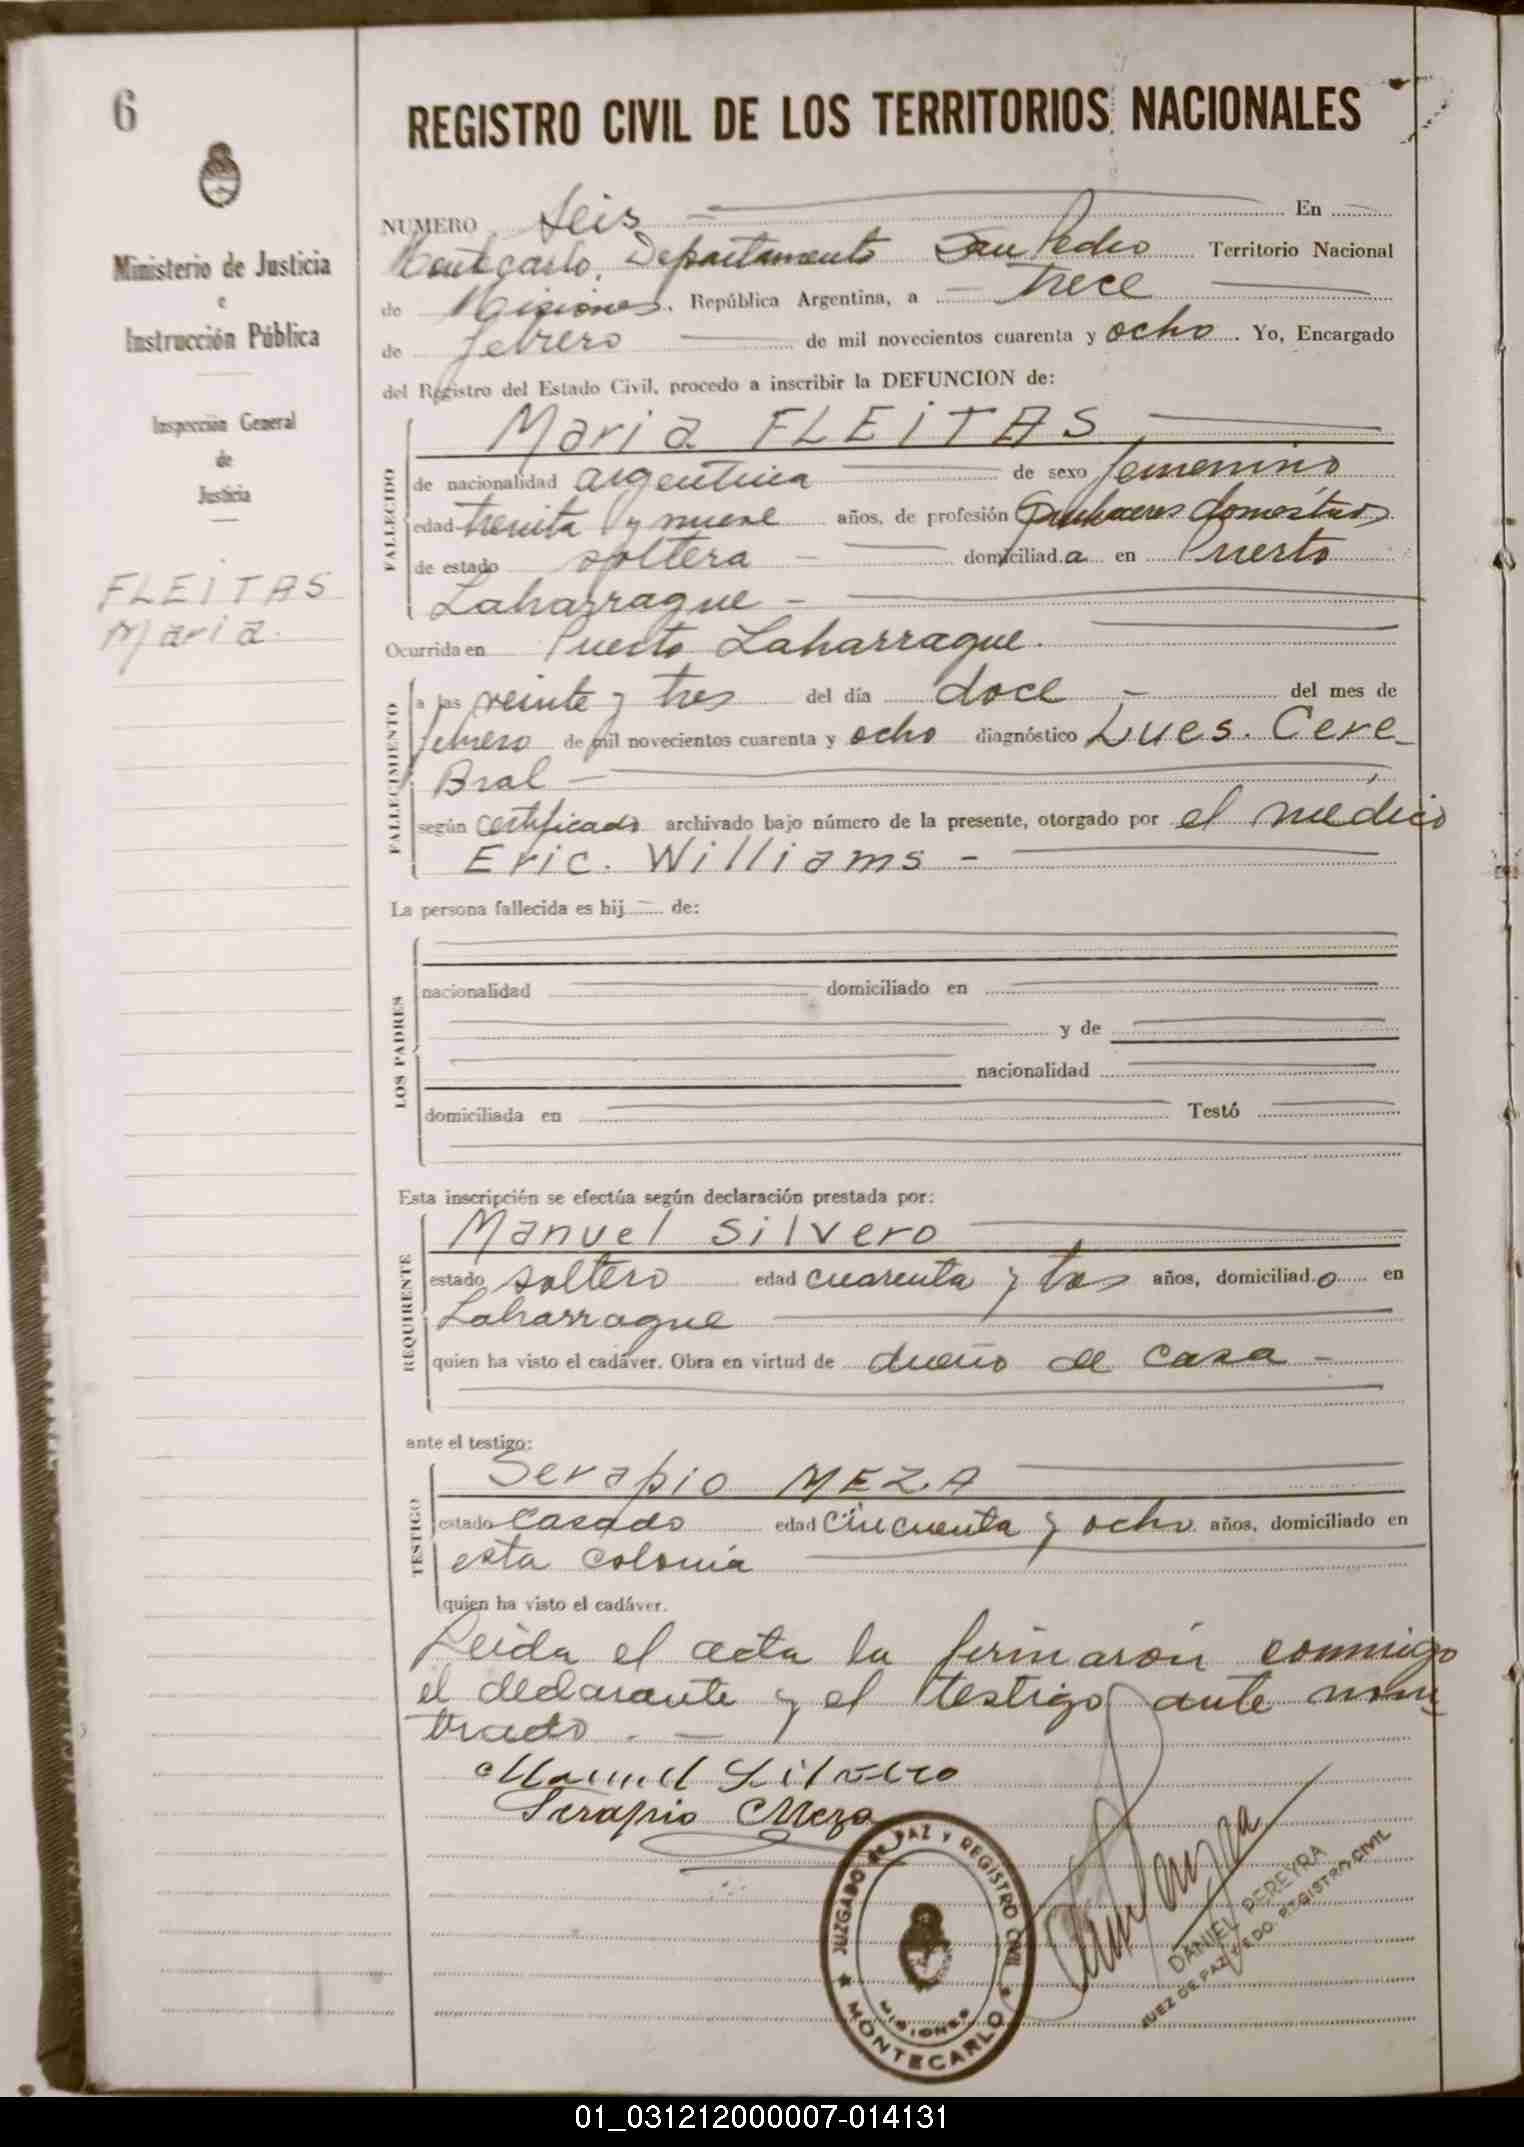 6
Ministerio de Justicia
e
Instrucción Pública
Inspección General
de
Justicia
FLEITAS
Maria.
REGISTRO CIVIL DE LOS TERRITORIOS NACIONALES
NUMERO Seis En
Montecarlo, Departamento San Pedro Territorio Nacional
de Misiones, República Argentina, a trece
de febrero de mil novecientos cuarenta y ocho. Yo, Encargado
del Registro del Estado Civil, procedo a inscribir la DEFUNCION de:
FALLECIDO
Maria FLEITAS
de nacionalidad argentina de sexo femenino
edad treinta y nueve años, de profesión Quehaceres domésticos
de estado soltera domiciliada en Puerto
Laharrague -
Ocurrida en Puerto Laharrague.
FALLECIMIENTO
a las veinte y tres del día doce - del mes de
febrero de mil novecientos cuarenta y ocho diagnóstico Lues. Cere-
Bral -
según certificado archivado bajo número de la presente, otorgado por el médico
Eric. Williams -
La persona fallecida es hij de:
LOS PADRES
nacionalidad domiciliado en
y de
nacionalidad
domiciliada en Testó
Esta inscripción se efectúa según declaración prestada por:
REQUIRENTE
Manuel Silvero
estado soltero edad cuarenta y tres años, domiciliado en
Laharrague
quien ha visto el cadáver. Obra en virtud de dueño de casa -
ante el testigo:
TESTIGO
Serapio MEZA
estado casado edad cincuenta y ocho años, domiciliado en
esta colonia
quien ha visto el cadáver.
Leida el acta la firmarón conmigo
el declarante y el testigo ante nom-
brado. -
Manuel Silvero
Serapio Meza
JUZGADO de PAZ Y REGISTRO CIVIL
MISIONES
MONTECARLO
DANIEL PEREYRA
JUEZ DE PAZ Y EDO. REGISTRO CIVIL
01_031212000007-014131